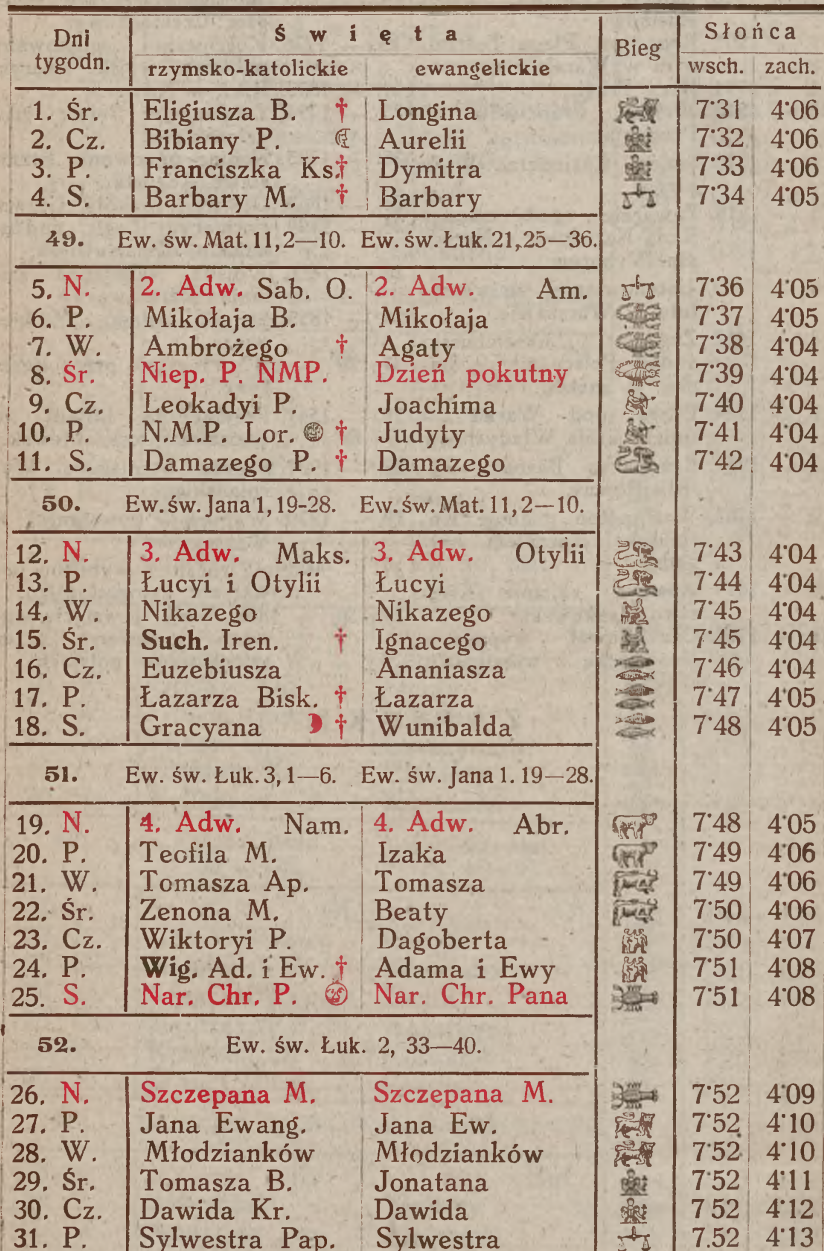 Dni tygodn. Święta Bieg Słońca
rzymsko-katolickie ewangelickie wsch. zach.
1. Śr. Eligiusza B. † Longina 7·31 4·06
2. Cz. Bibiany P. Aurelii 7·32 4·06
3. P. Franciszka Ks.† Dymitra 7·33 4·06
4. S. Barbary M. † Barbary 7·34 4·05
49. Ew. św. Mat. 11, 2—10. Ew. św. Łuk. 21, 25—36.
5. N. 2. Adw. Sab. O. 2. Adw. Am. 7·36 4·05
6. P. Mikołaja B. Mikołaja 7·37 4·05
7. W. Ambrożego † Agaty 7·38 4·04
8. Śr. Niep. P. NMP. Dzień pokutny 7·39 4·04
9. Cz. Leokadyi P. Joachima 7·40 4·04
10. P. N.M.P. Lor. † Judyty 7·41 4·04
11. S. Damazego P. † Damazego 7·42 4·04
50. Ew. św. Jana 1, 19-28. Ew. św. Mat. 11, 2—10.
12. N. 3. Adw. Maks. 3. Adw. Otylii 7·43 4·04
13. P. Łucyi i Otylii Łucyi 7·44 4·04
14. W. Nikazego Nikazego 7·45 4·04
15. Śr. Such. Iren. † Ignacego 7·45 4·04
16. Cz. Euzebiusza Ananiasza 7·46 4·04
17. P. Łazarza Bisk. † Łazarza 7·47 4·05
18. S. Gracyana † Wunibalda 7·48 4·05
51. Ew. św. Łuk. 3, 1—6. Ew. św. Jana 1. 19—28.
19. N. 4. Adw. Nam. 4. Adw. Abr. 7·48 4·05
20. P. Teofila M. Izaka 7·49 4·06
21. W. Tomasza Ap. Tomasza 7·49 4·06
22. Śr. Zenona M. Beaty 7·50 4·06
23. Cz. Wiktoryi P. Dagoberta 7·50 4·07
24. P. Wig. Ad. i Ew. † Adama i Ewy 7·51 4·08
25. S. Nar. Chr. P. Nar. Chr. Pana 7·51 4·08
52. Ew. św. Łuk. 2, 33—40.
26. N. Szczepana M. Szczepana M. 7·52 4·09
27. P. Jana Ewang. Jana Ew. 7·52 4·10
28. W. Młodzianków Młodzianków 7·52 4·10
29. Śr. Tomasza B. Jonatana 7·52 4·11
30. Cz. Dawida Kr. Dawida 7 52 4·12
31. P. Sylwestra Pap. Sylwestra 7.52 4·13